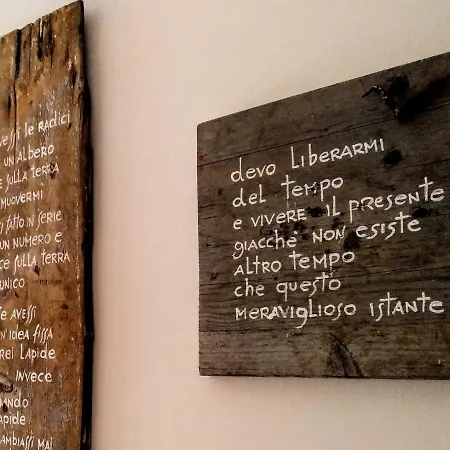 le radici
un albero
sulla terra
muovermi
fatto in serie
un numero e
ce sulla terra
unico
e avessi
n'idea fissa
rei lapide
invece
ando
apide
ambiassi mai
devo liberarmi
del tempo
e vivere il presente
giacche non esiste
altro tempo
che questo
meraviglioso istante